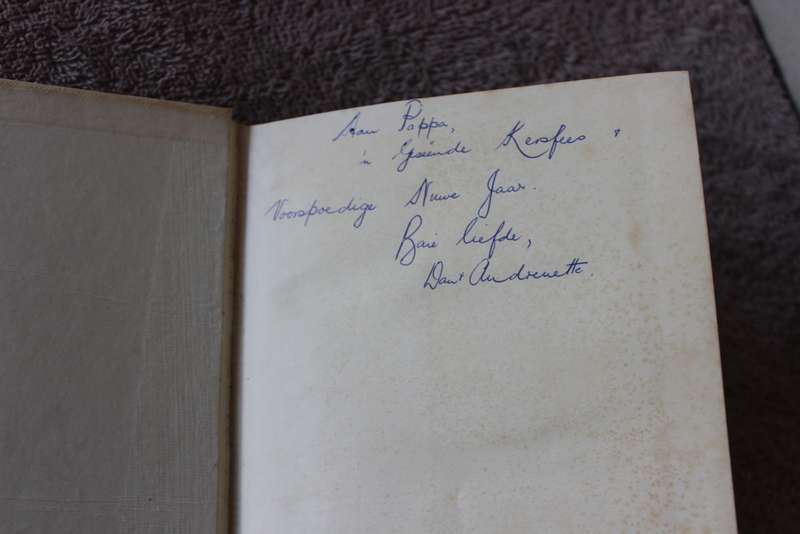 Aan Pappa,
'n Geseënde Kersfees &
Voorspoedige Nuwe Jaar.
Baie liefde,
Dan & Andrenette.